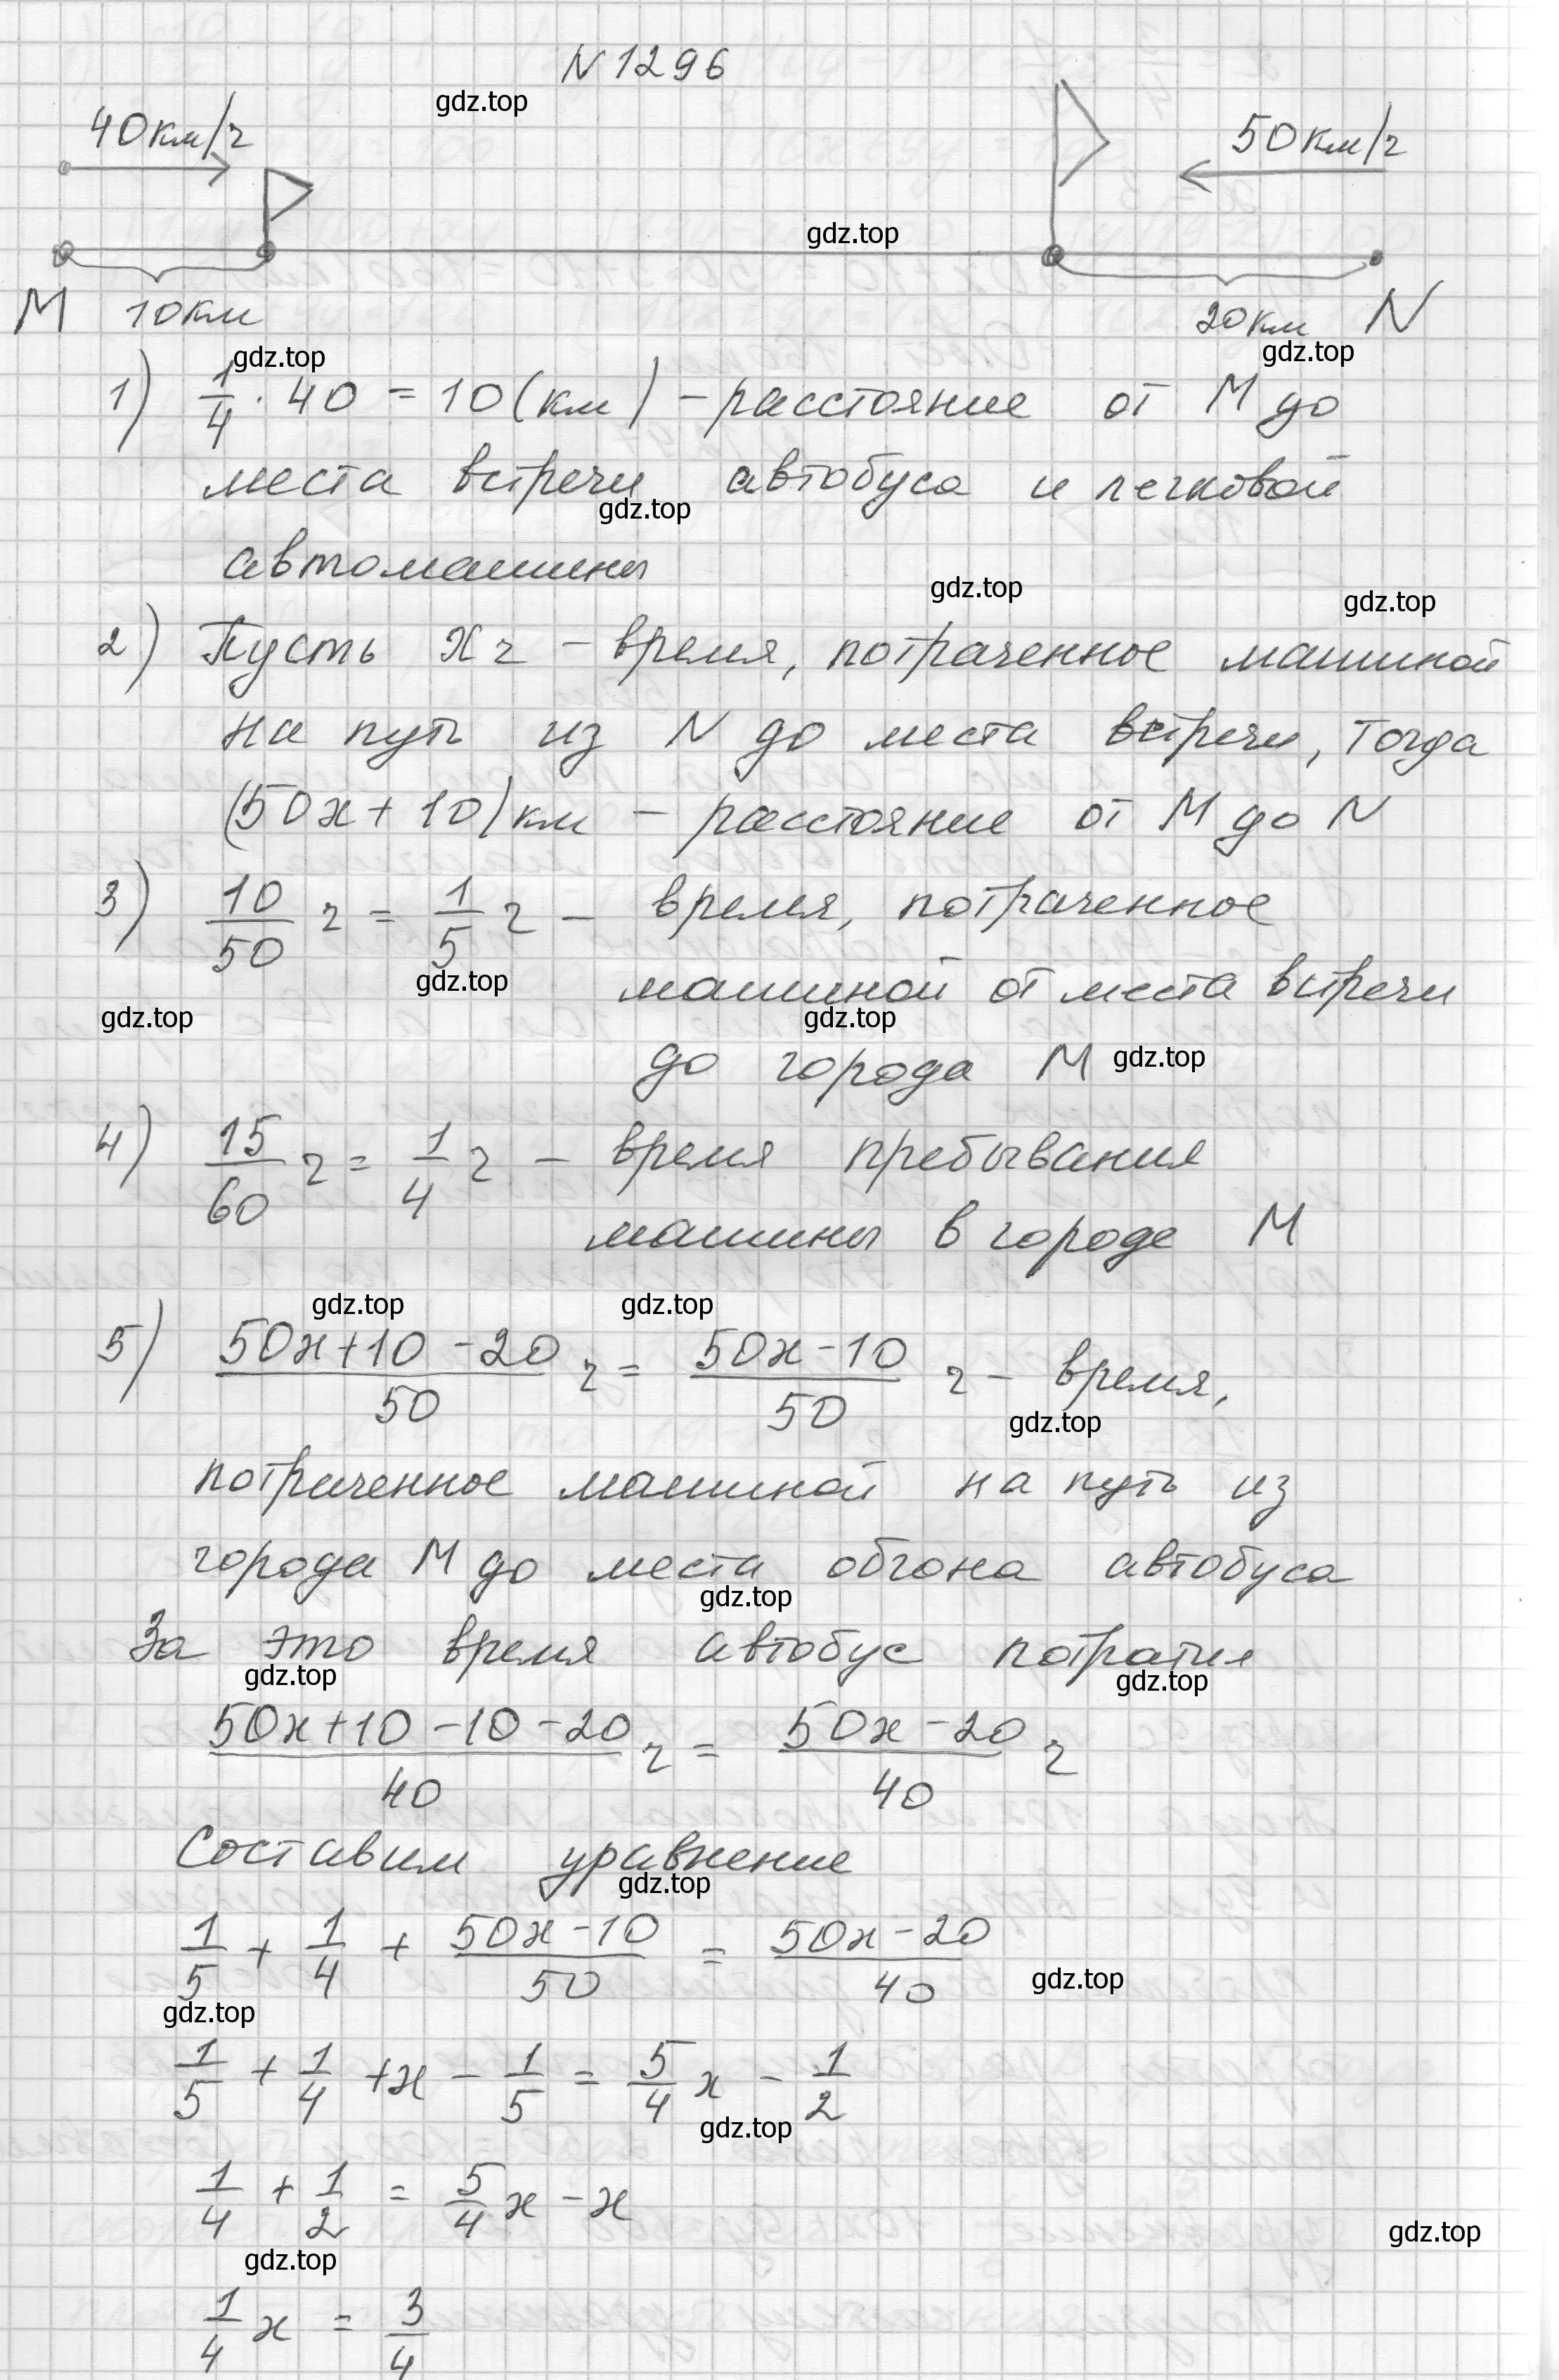 N 1296
gdz.top
40км/ч
50км/ч
gdz.top
M 10км
20км N
gdz.top
gdz.top
1) 1/4 · 40 = 10 (км) – расстояние от M до
места встречи автобуса и легковой
gdz.top
автомашины
gdz.top
gdz.top
2) Пусть x ч – время, потраченное машиной
на путь из N до места встречи, тогда
(50x + 10) км – расстояние от M до N
3) 10/50 ч = 1/5 ч – время, потраченное
gdz.top
машиной от места встречи
gdz.top
gdz.top
до города M
gdz.top
4) 15/60 ч = 1/4 ч – время пребывания
машины в городе M
gdz.top
gdz.top
5) (50x+10-20)/50 ч = (50x-10)/50 ч – время,
gdz.top
потраченное машиной на путь из
города M до места обгона автобуса
gdz.top
За это время автобус потратил
gdz.top
gdz.top
(50x+10-10-20)/40 ч = (50x-20)/40 ч
Составим уравнение
gdz.top
1/5 + 1/4 + (50x-10)/50 = (50x-20)/40
gdz.top
gdz.top
1/5 + 1/4 + x - 1/5 = 5/4 x - 1/2
gdz.top
1/4 + 1/2 = 5/4 x - x
gdz.top
gdz.top
1/4 x = 3/4